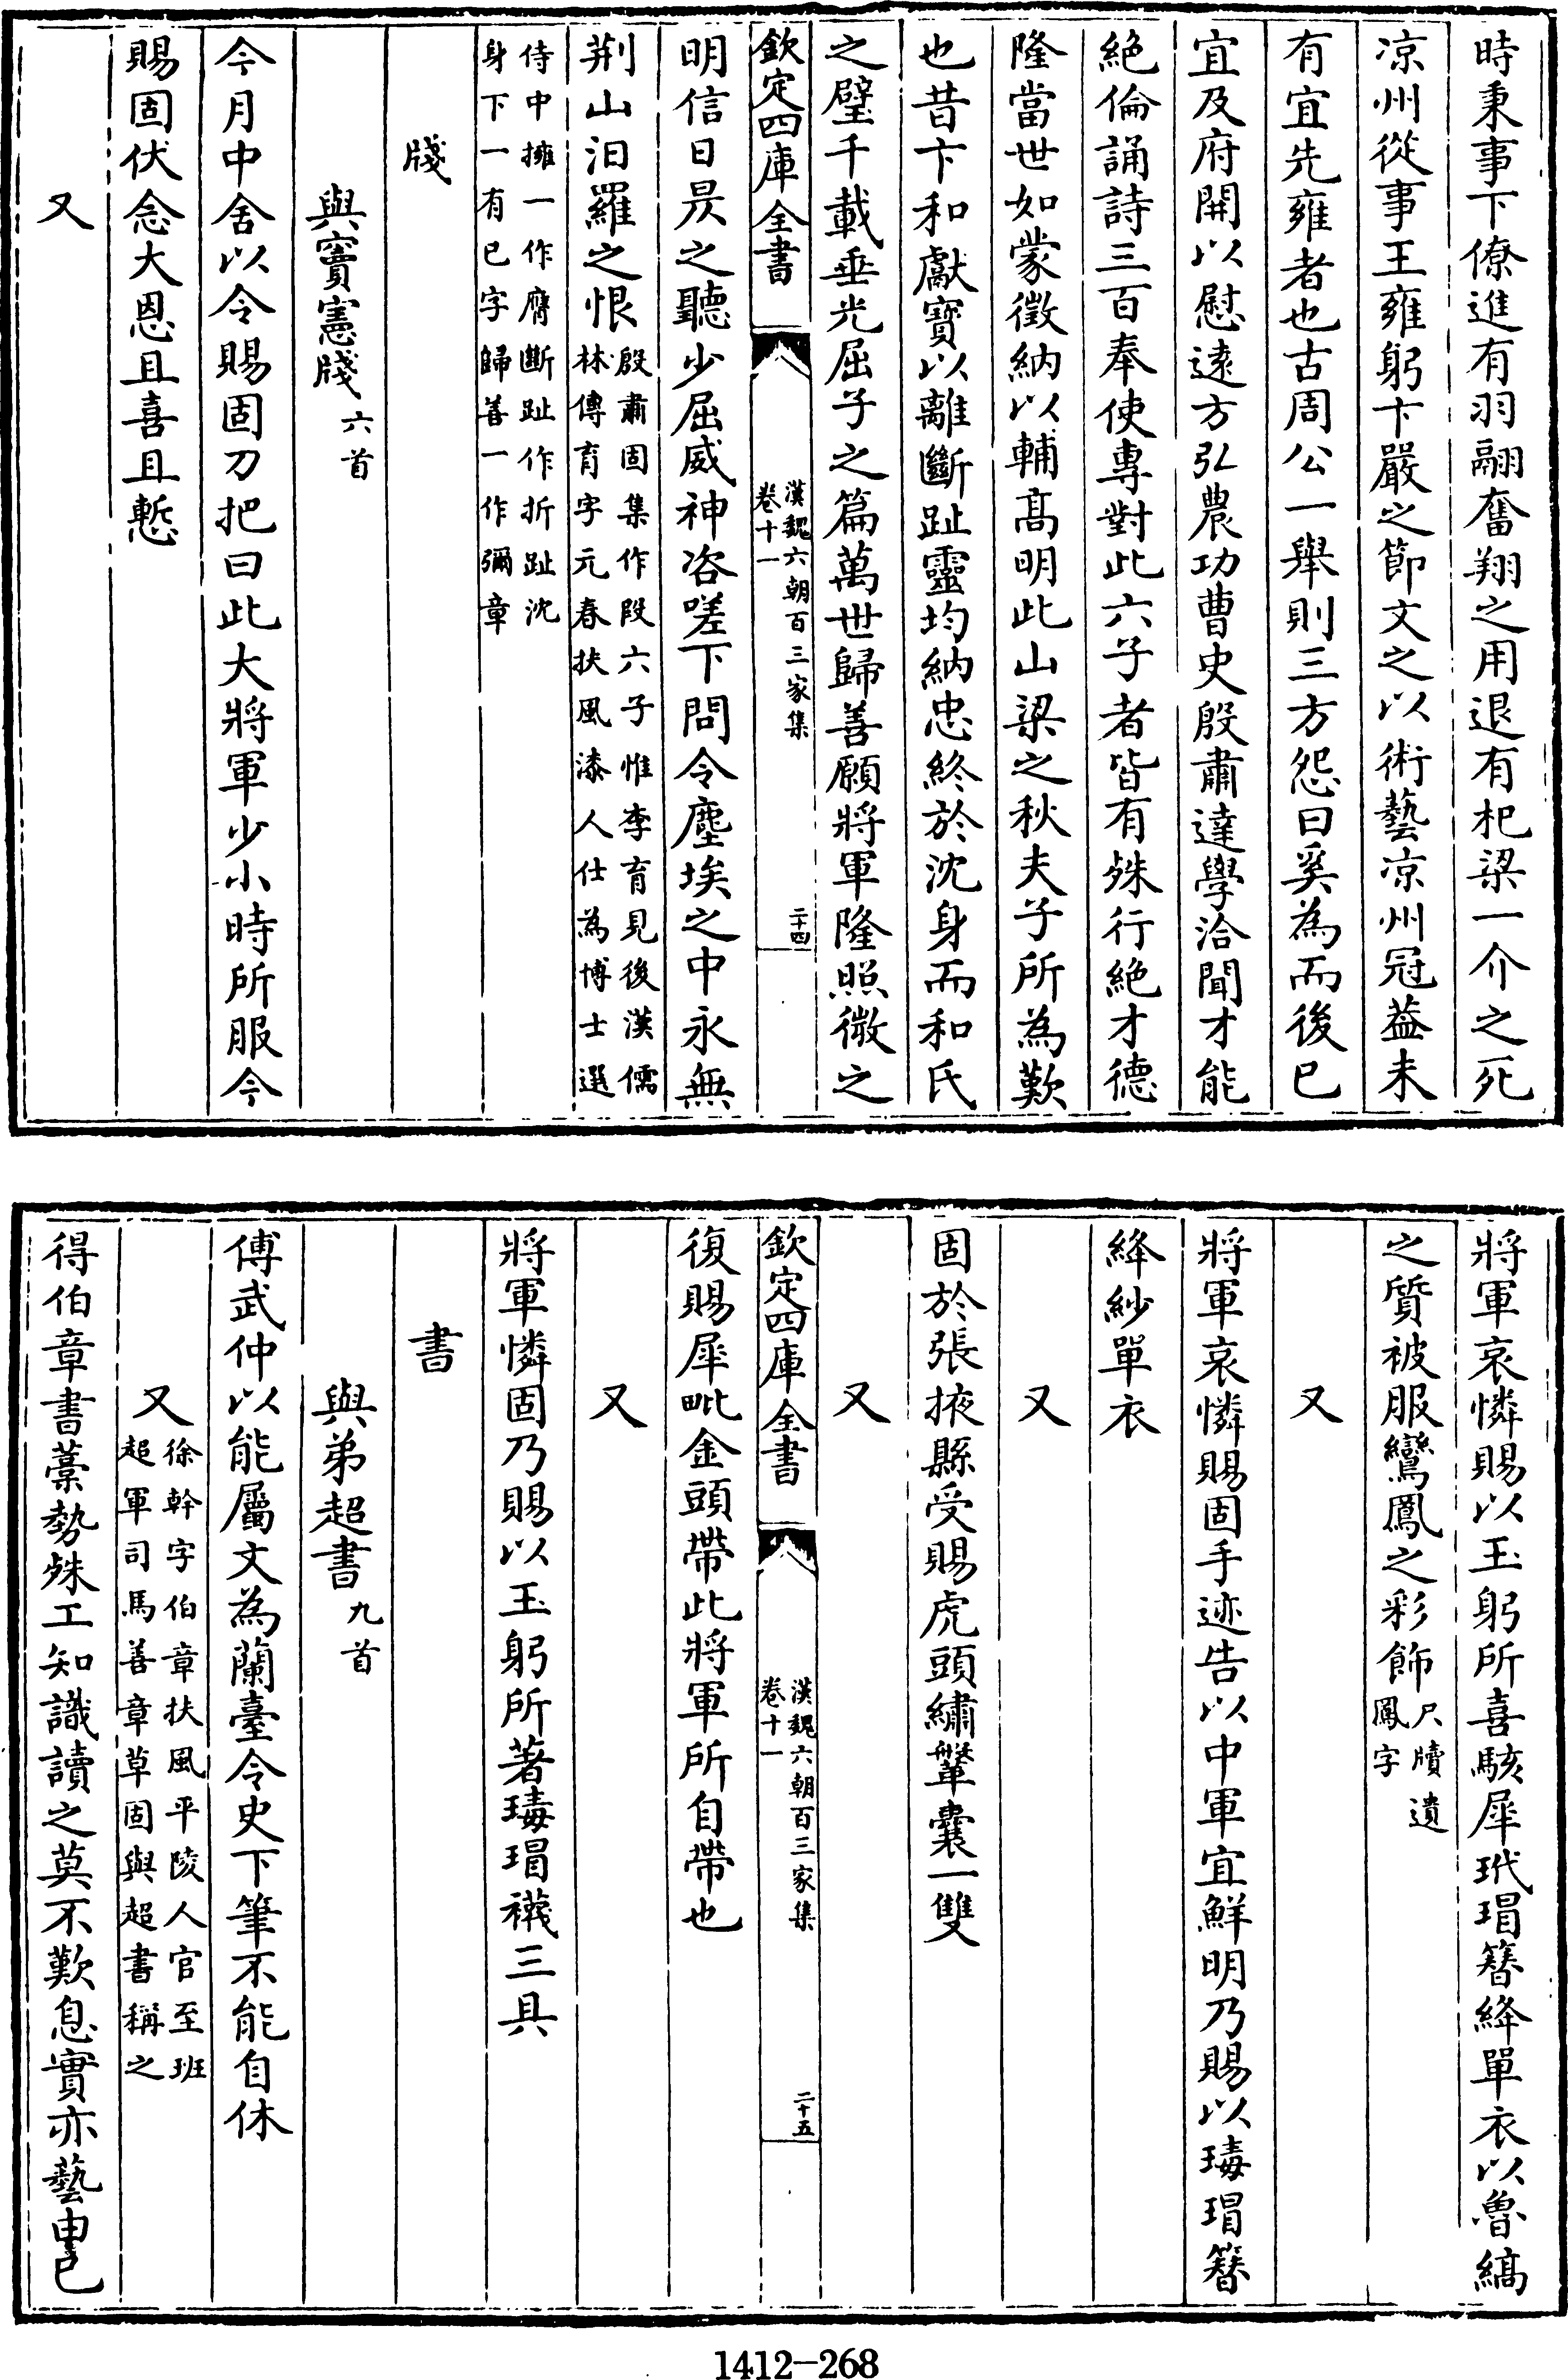 時秉事下僚進有羽翮奮翔之用退有杞梁一介之死
凉州從事王雍躬卞嚴之節文之以術藝凉州冠葢未
有宜先雍者也古周公一舉則三方怨曰奚為而後已
宜及府開以慰逺方弘農功曹史殷肅達學洽聞才能
絶倫誦詩三百奉使專對此六子者皆有殊行絶才德
隆當世如蒙徵納以輔髙明此山梁之秋夫子所為歎
也昔卞和獻寳以離斷趾靈均納忠終於沈身而和氏
之璧千載垂光屈子之篇萬世歸善願將軍隆照微之
欽定四庫全書
漢魏六朝百三家集
卷十一
二十四
明信日昃之聽少屈威神咨嗟下問令塵埃之中永無
荆山汨羅之恨
殷肅固集作段六子惟李育見後漢儒
林傳育字元春扶風漆人仕為博士選
侍中擁一作膺斷趾作折趾沈
身下一有已字歸善一作彌章
牋
與竇憲牋六首
今月中舍以令賜固刀把曰此大將軍少小時所服今
賜固伏念大恩且喜且慙
又
將軍哀憐賜以玉躬所喜駭犀玳瑁簪絳單衣以魯縞
之質被服鸞鳳之彩飾
尺牘遺
鳳字
又
將軍哀憐賜固手迹告以中軍宜鮮明乃賜以瑇瑁簪
絳紗單衣
又
固於張掖縣受賜虎頭繡鞶囊一雙
又
欽定四庫全書
漢魏六朝百三家集
卷十一
二十五
復賜犀毗金頭帶此將軍所自帶也
又
將軍憐固乃賜以玉躬所著瑇瑁襪三具
書
與弟超書九首
傅武仲以能屬文為蘭臺令史下筆不能自休
又
徐幹字伯章扶風平陵人官至班
超軍司馬善章草固與超書稱之
得伯章書藁勢殊工知識讀之莫不歎息實亦藝由已
1412-268